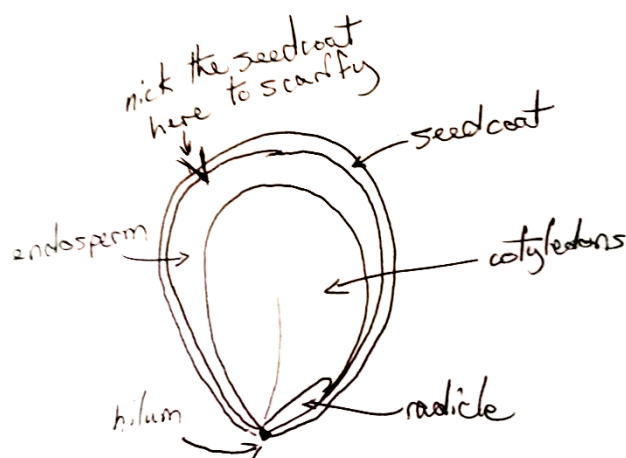 nick the seedcoat
here to scarify
seedcoat
endosperm
cotyledons
hilum
radicle